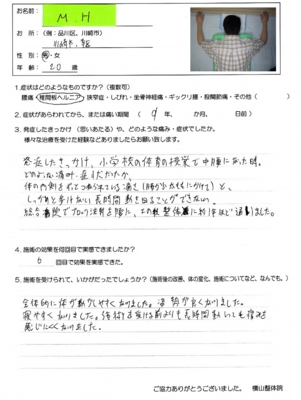 お名前： M.H
お 所：（例：品川区、川崎市）
川崎市
性 別：男・女
年 齢：20 歳
1.症状はどのようなものですか？（複数可）
腰痛・椎間板ヘルニア・狭窄症・しびれ・坐骨神経痛・ギックリ腰・股関節痛・その他（ ）
2.症状があらわれてから、または痛い期間（ 9 年、 か月、 日前）
3.発症したきっかけ（思いあたる）や、どのような痛み・症状でしたか。
様々な治療を受けた経験などありましたらお願い致します。
発症したきっかけ、小学校の体育の授業で中腰になった時。
どのような痛み・症状だったか、
体の内側を
しっかりと歩けない 長時間 ことができない。
総合病院でブロック注射を
4.施術の効果を何回目で実感できましたか？
6 回目で効果を実感できた。
5.施術を受けられて、いかがだったでしょうか？（施術後の改善、体の変化、施術についてなど、なんでも。）
全体的に体が動かしやすくなりました。姿勢が良くなりました。
寝やすくなりました。施術を受ける前よりも長時間 しても痛みを
感じにくくなりました。
ご協力ありがとうございました。 横山整体院